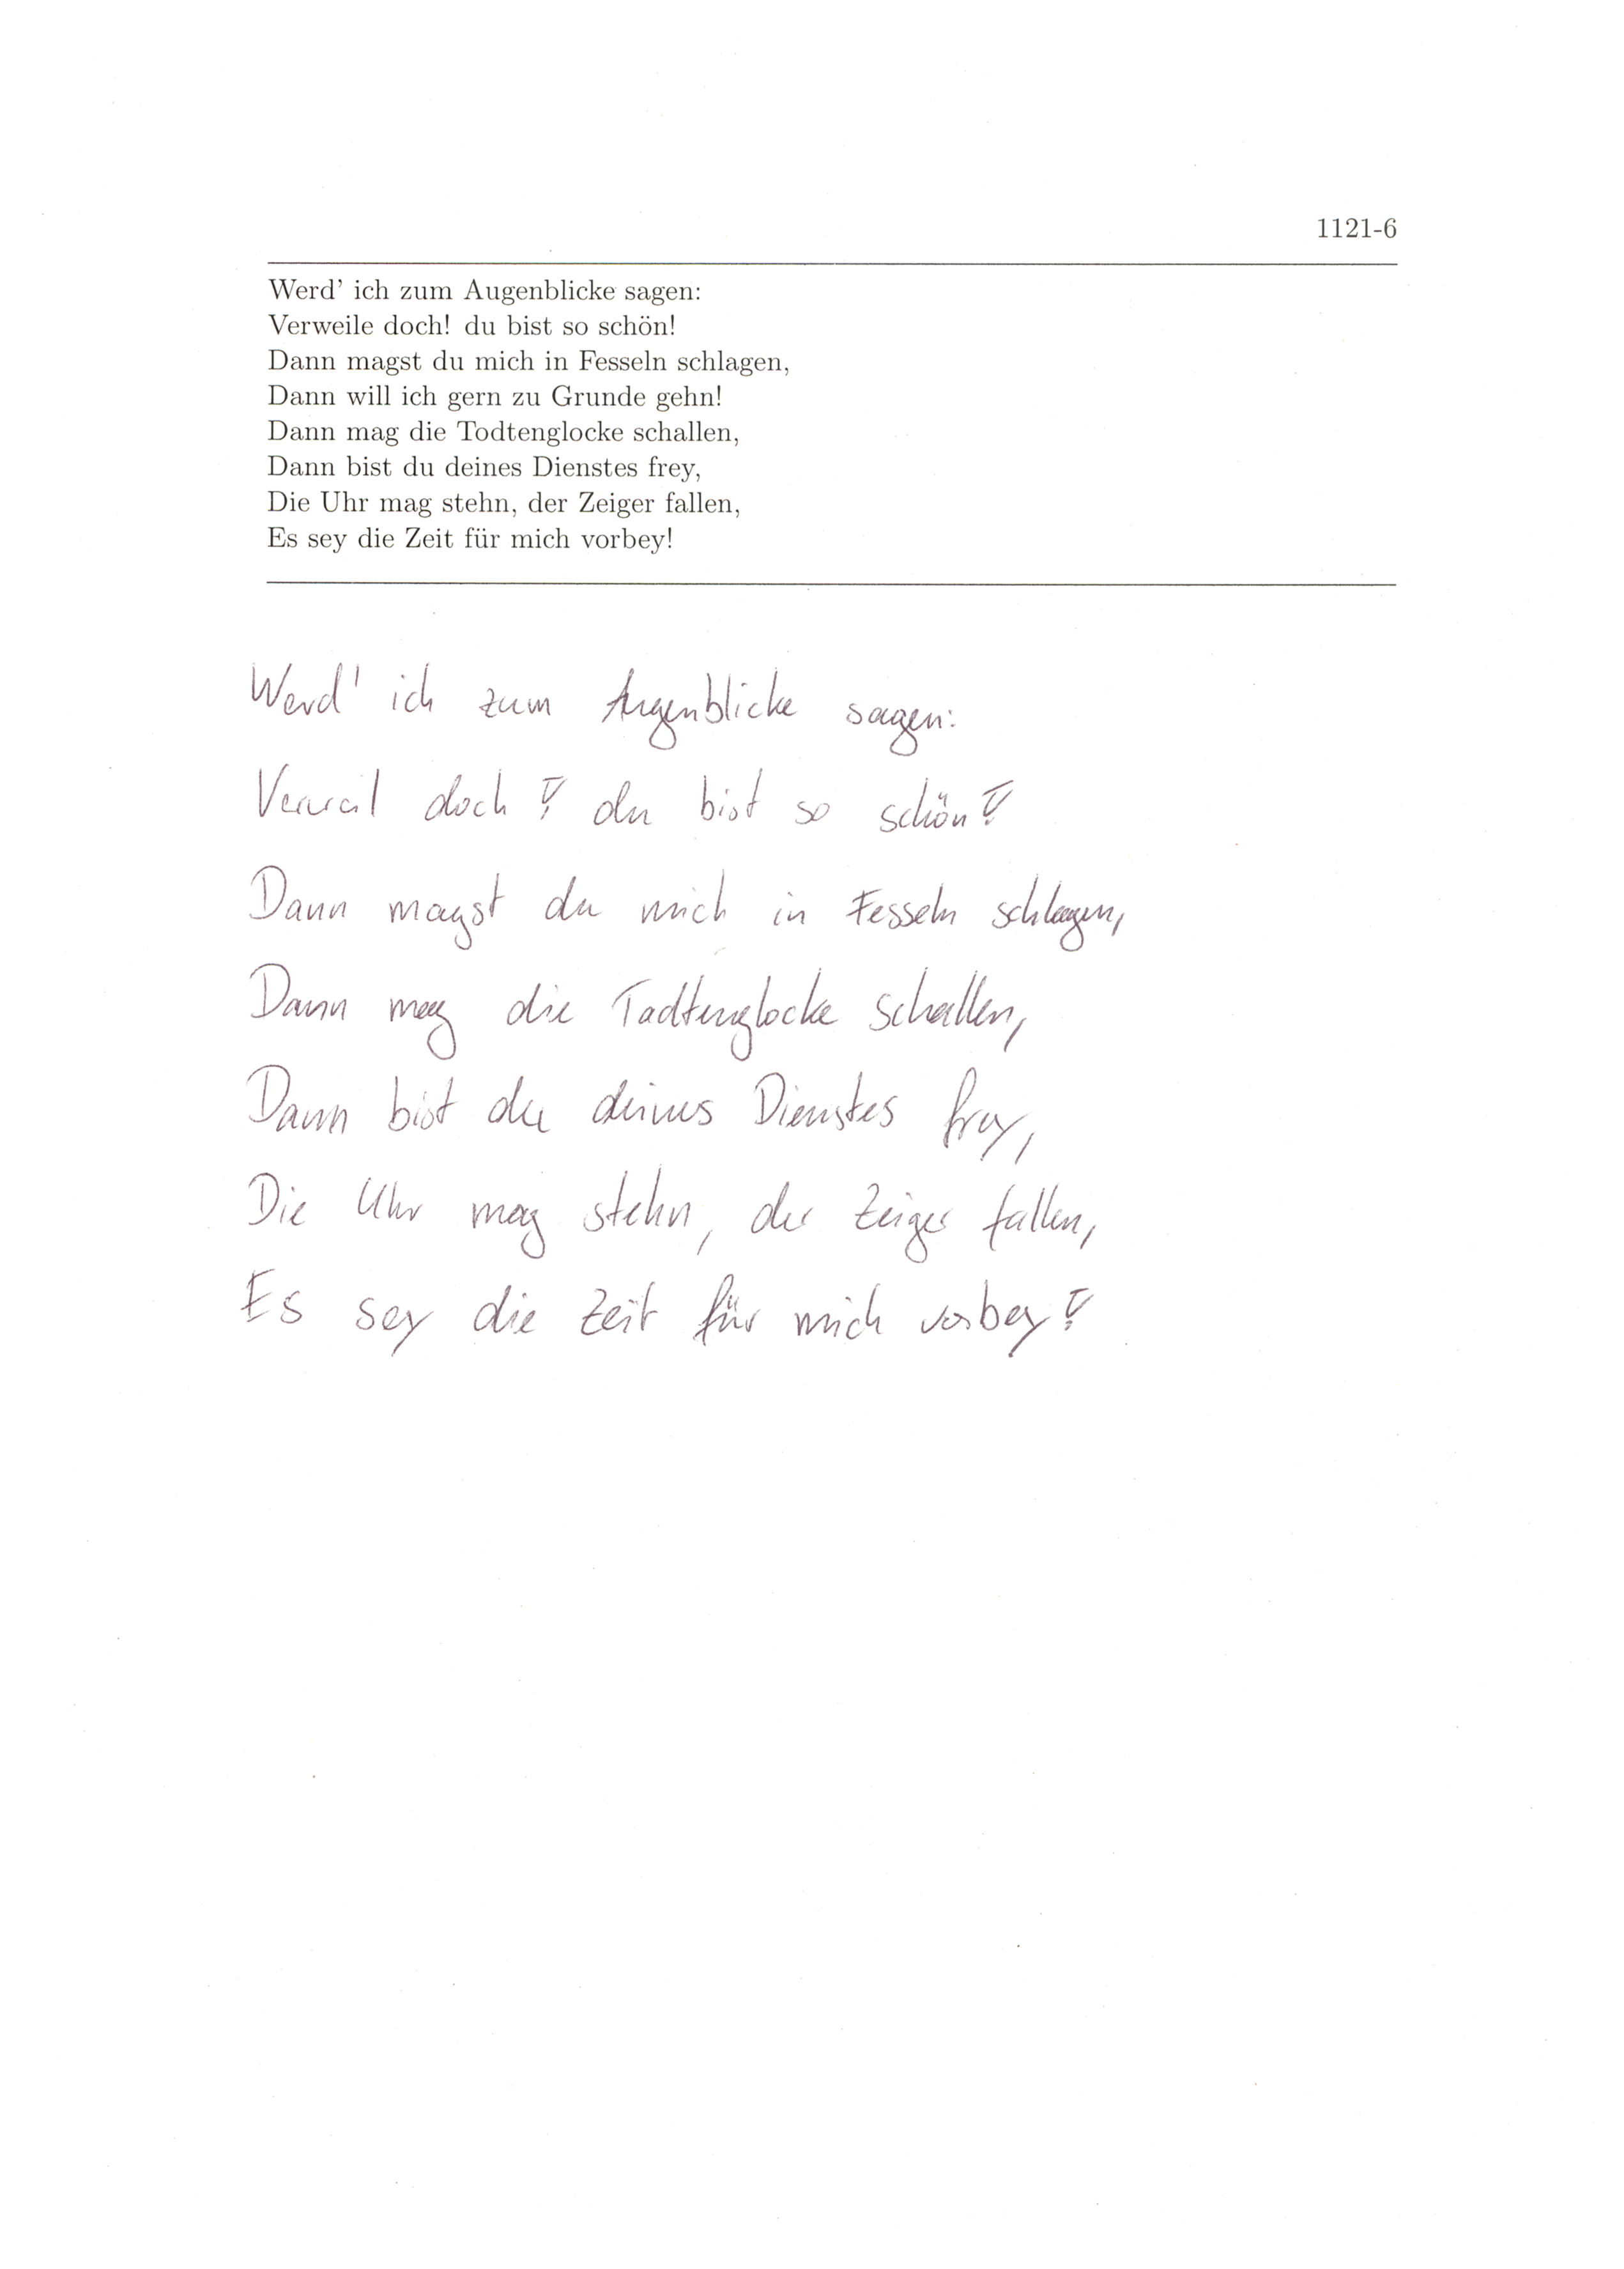 1121-6
Werd' ich zum Augenblicke sagen:
Verweile doch! du bist so schön!
Dann magst du mich in Fesseln schlagen,
Dann will ich gern zu Grunde gehn!
Dann mag die Todtenglocke schallen,
Dann bist du deines Dienstes frey,
Die Uhr mag stehn, der Zeiger fallen,
Es sey die Zeit für mich vorbey!
Werd' ich zum Augenblicke sagen:
Verweil doch! du bist so schön!
Dann magst du mich in Fesseln schlagen,
Dann mag die Tadtenglocke schallen,
Dann bist du deines Dienstes frey,
Die Uhr mag stehn, der Zeiger fallen,
Es sey die Zeit für mich vorbey!